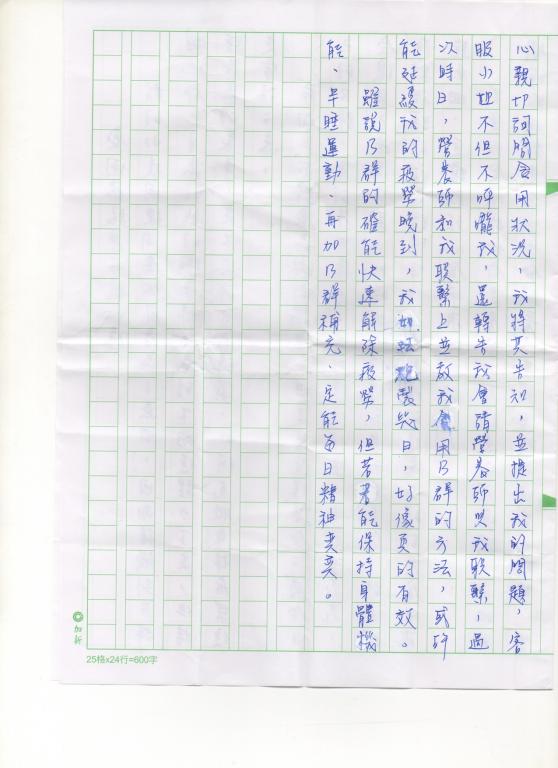 心親切詢問食用狀況，我將其告知，並提出我的問題，客
服小姐不但不呼嚨我，還轉告我會請營養師與我聯繫，過
次時日，營養師和我聯繫上並教我食用B群的方法，或許
能延緩我的疲勞晚到，我如法炮製幾日，好像真的有效。
雖說B群的確能快速解除疲勞，但若者能保持身體機
能、早睡運動、再加B群補充，定能每日精神奕奕。
加新
25格x24行=600字